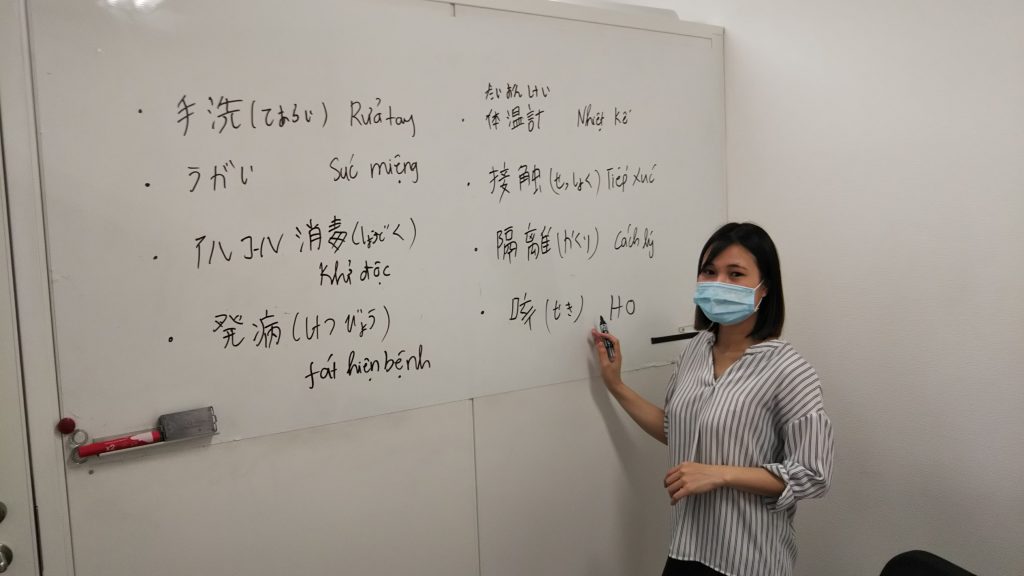 ・ 手洗(てあらい) Rửa tay
・ うがい Súc miệng
・ アルコール消毒(しょどく)
Khử độc
・ 発病(はつびょう)
fát hiện bệnh
たいおんけい
・ 体温計 Nhiệt kế
・ 接触(せっしょく) Tiếp xúc
・ 隔離(かくり) Cách lý
・ 咳(せき) HO